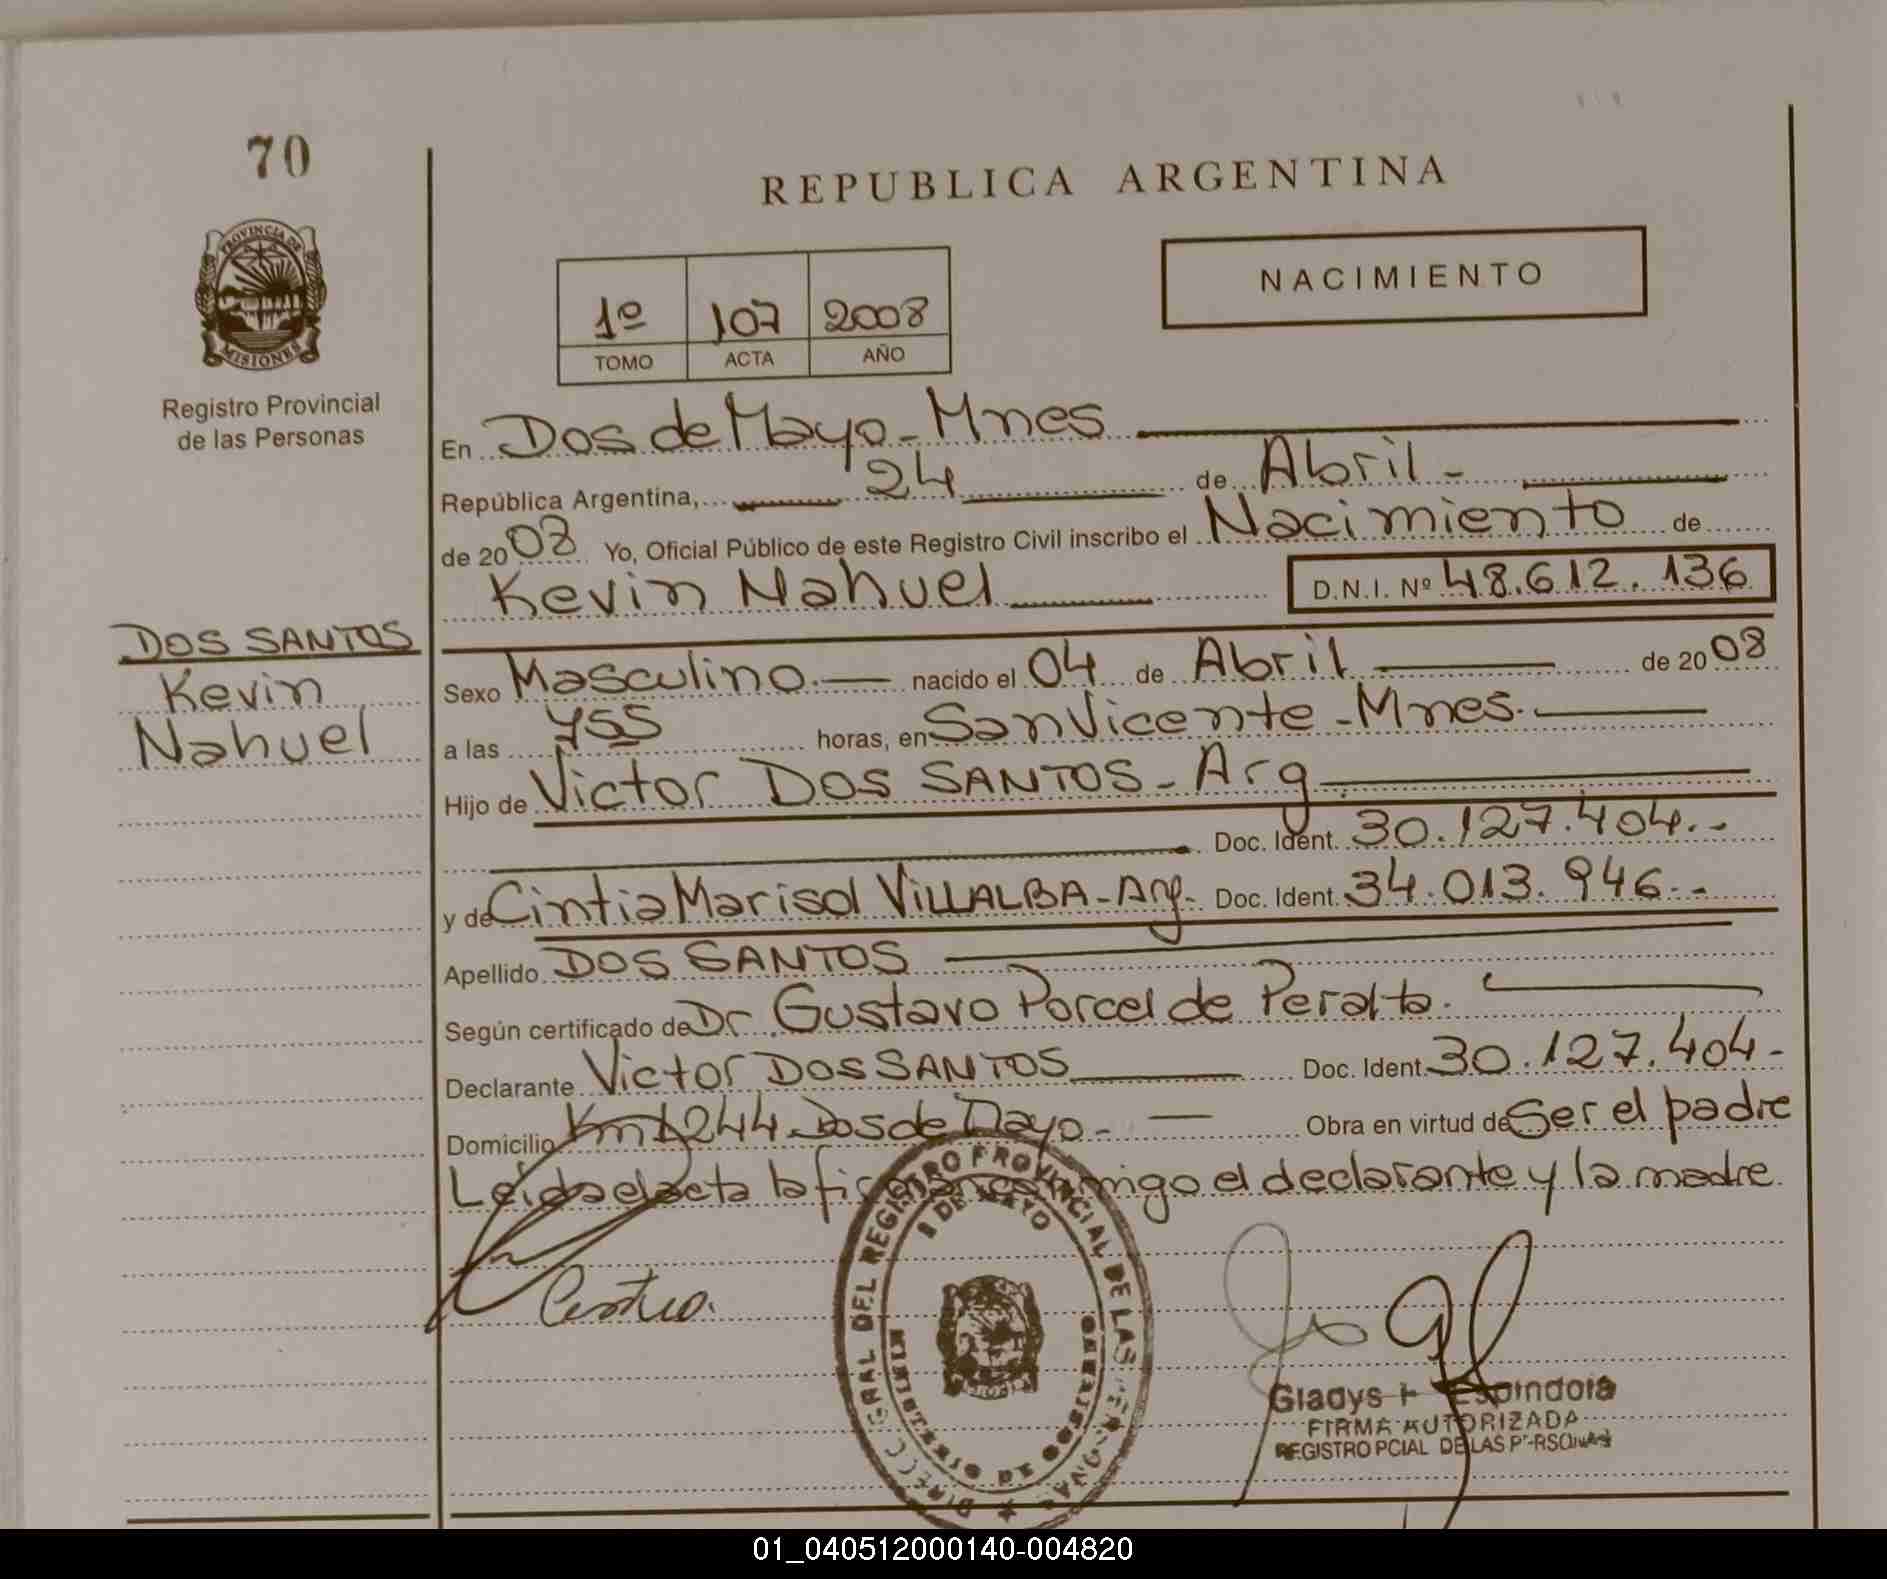 70
REPUBLICA ARGENTINA
PROVINCIA DE
MISIONES
Registro Provincial
de las Personas
NACIMIENTO
1º 107 2008
TOMO ACTA AÑO
En Dos de Mayo - Mnes
República Argentina, 24 de Abril -
de 2008 Yo, Oficial Público de este Registro Civil inscribo el Nacimiento de
Kevin Nahuel D.N.I. Nº 48.612.136
DOS SANTOS
Kevin
Nahuel
Sexo Masculino. nacido el 04 de Abril de 2008
a las horas, en San Vicente - Mnes.
Hijo de Victor DOS SANTOS - Arg
Doc. Ident. 30.127.404.-
y de Cintia Marisol VILLALBA - Arg. Doc. Ident. 34.013.946.-
Apellido DOS SANTOS
Según certificado de Dr Gustavo Porcel de Peralta.
Declarante Victor DOS SANTOS Doc. Ident. 30.127.404-
Domicilio Km 1244 Dos de Mayo - Obra en virtud de Ser el padre
Leida el acta la conmigo el declarante y la madre
REGISTRO PROVINCIAL DE LAS
2 DE MAYO
Gladys Espindola
FIRMA AUTORIZADA
REGISTRO PCIAL DE LAS PERSONAS
01_040512000140-004820